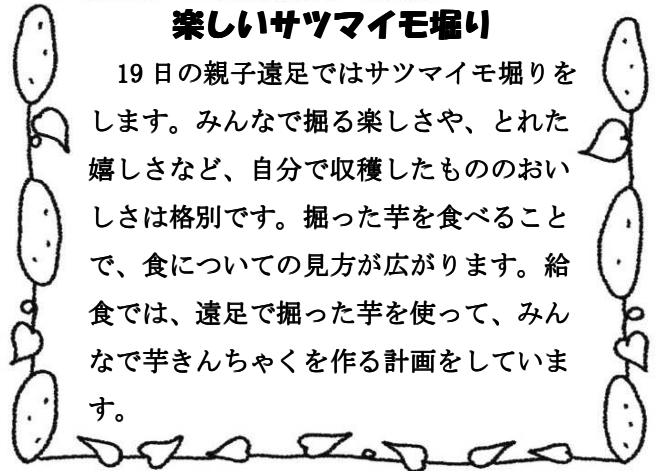 楽しいサツマイモ堀り
19日の親子遠足ではサツマイモ堀りを
します。みんなで掘る楽しさや、とれた
嬉しさなど、自分で収穫したもののおい
しさは格別です。掘った芋を食べること
で、食についての見方が広がります。給
食では、遠足で掘った芋を使って、みん
なで芋きんちゃくを作る計画をしていま
す。